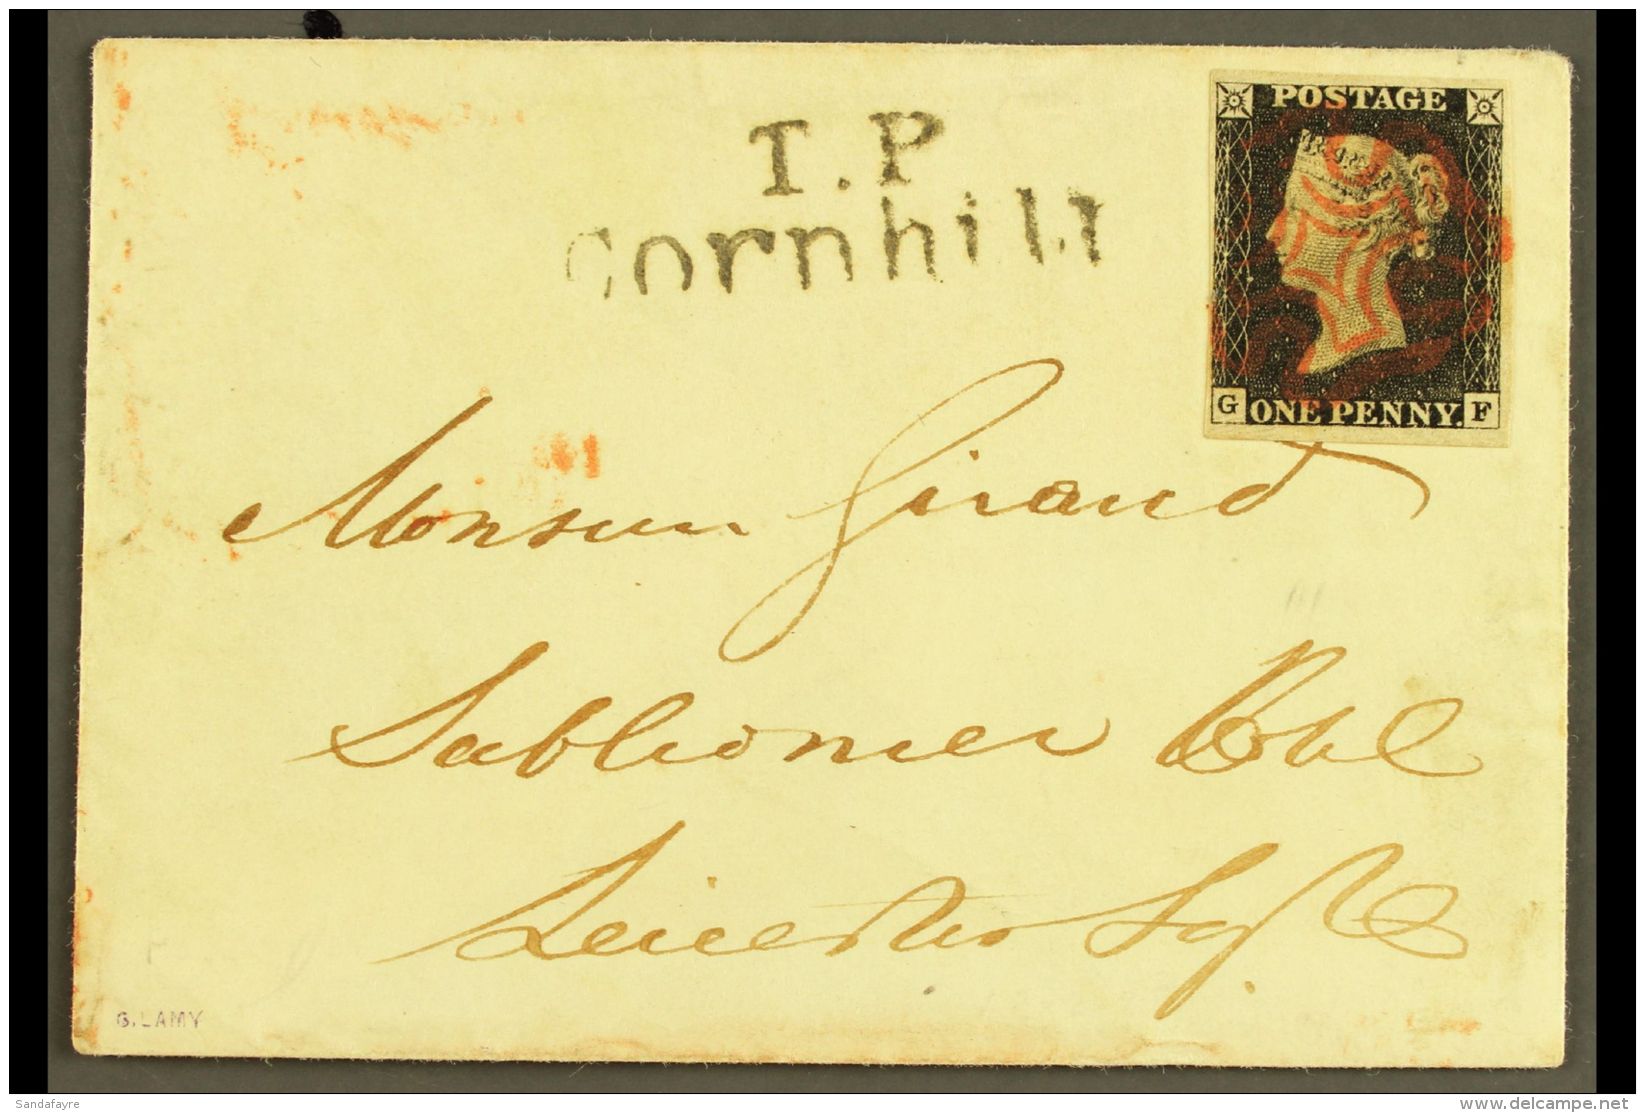 T.P
Cornhill
POSTAGE
G ONE PENNY. F
Monsieur Giraud
Sablionier
Leicester Sqre
G. LAMY
Sandafayre
delcampe.net